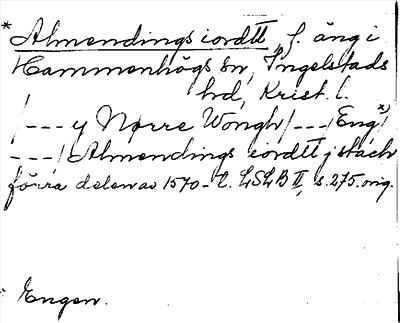 * Almendings iordtt, f. äng i
Hammenhögs sn, Ingelstads
hd, Krist. l.
/--- y Nørre Wongh/---/Eng*)/
---/Almendings iordtt j stäch
förra delen av 1570-t. LSLB II, s. 275. orig.
* Engen.